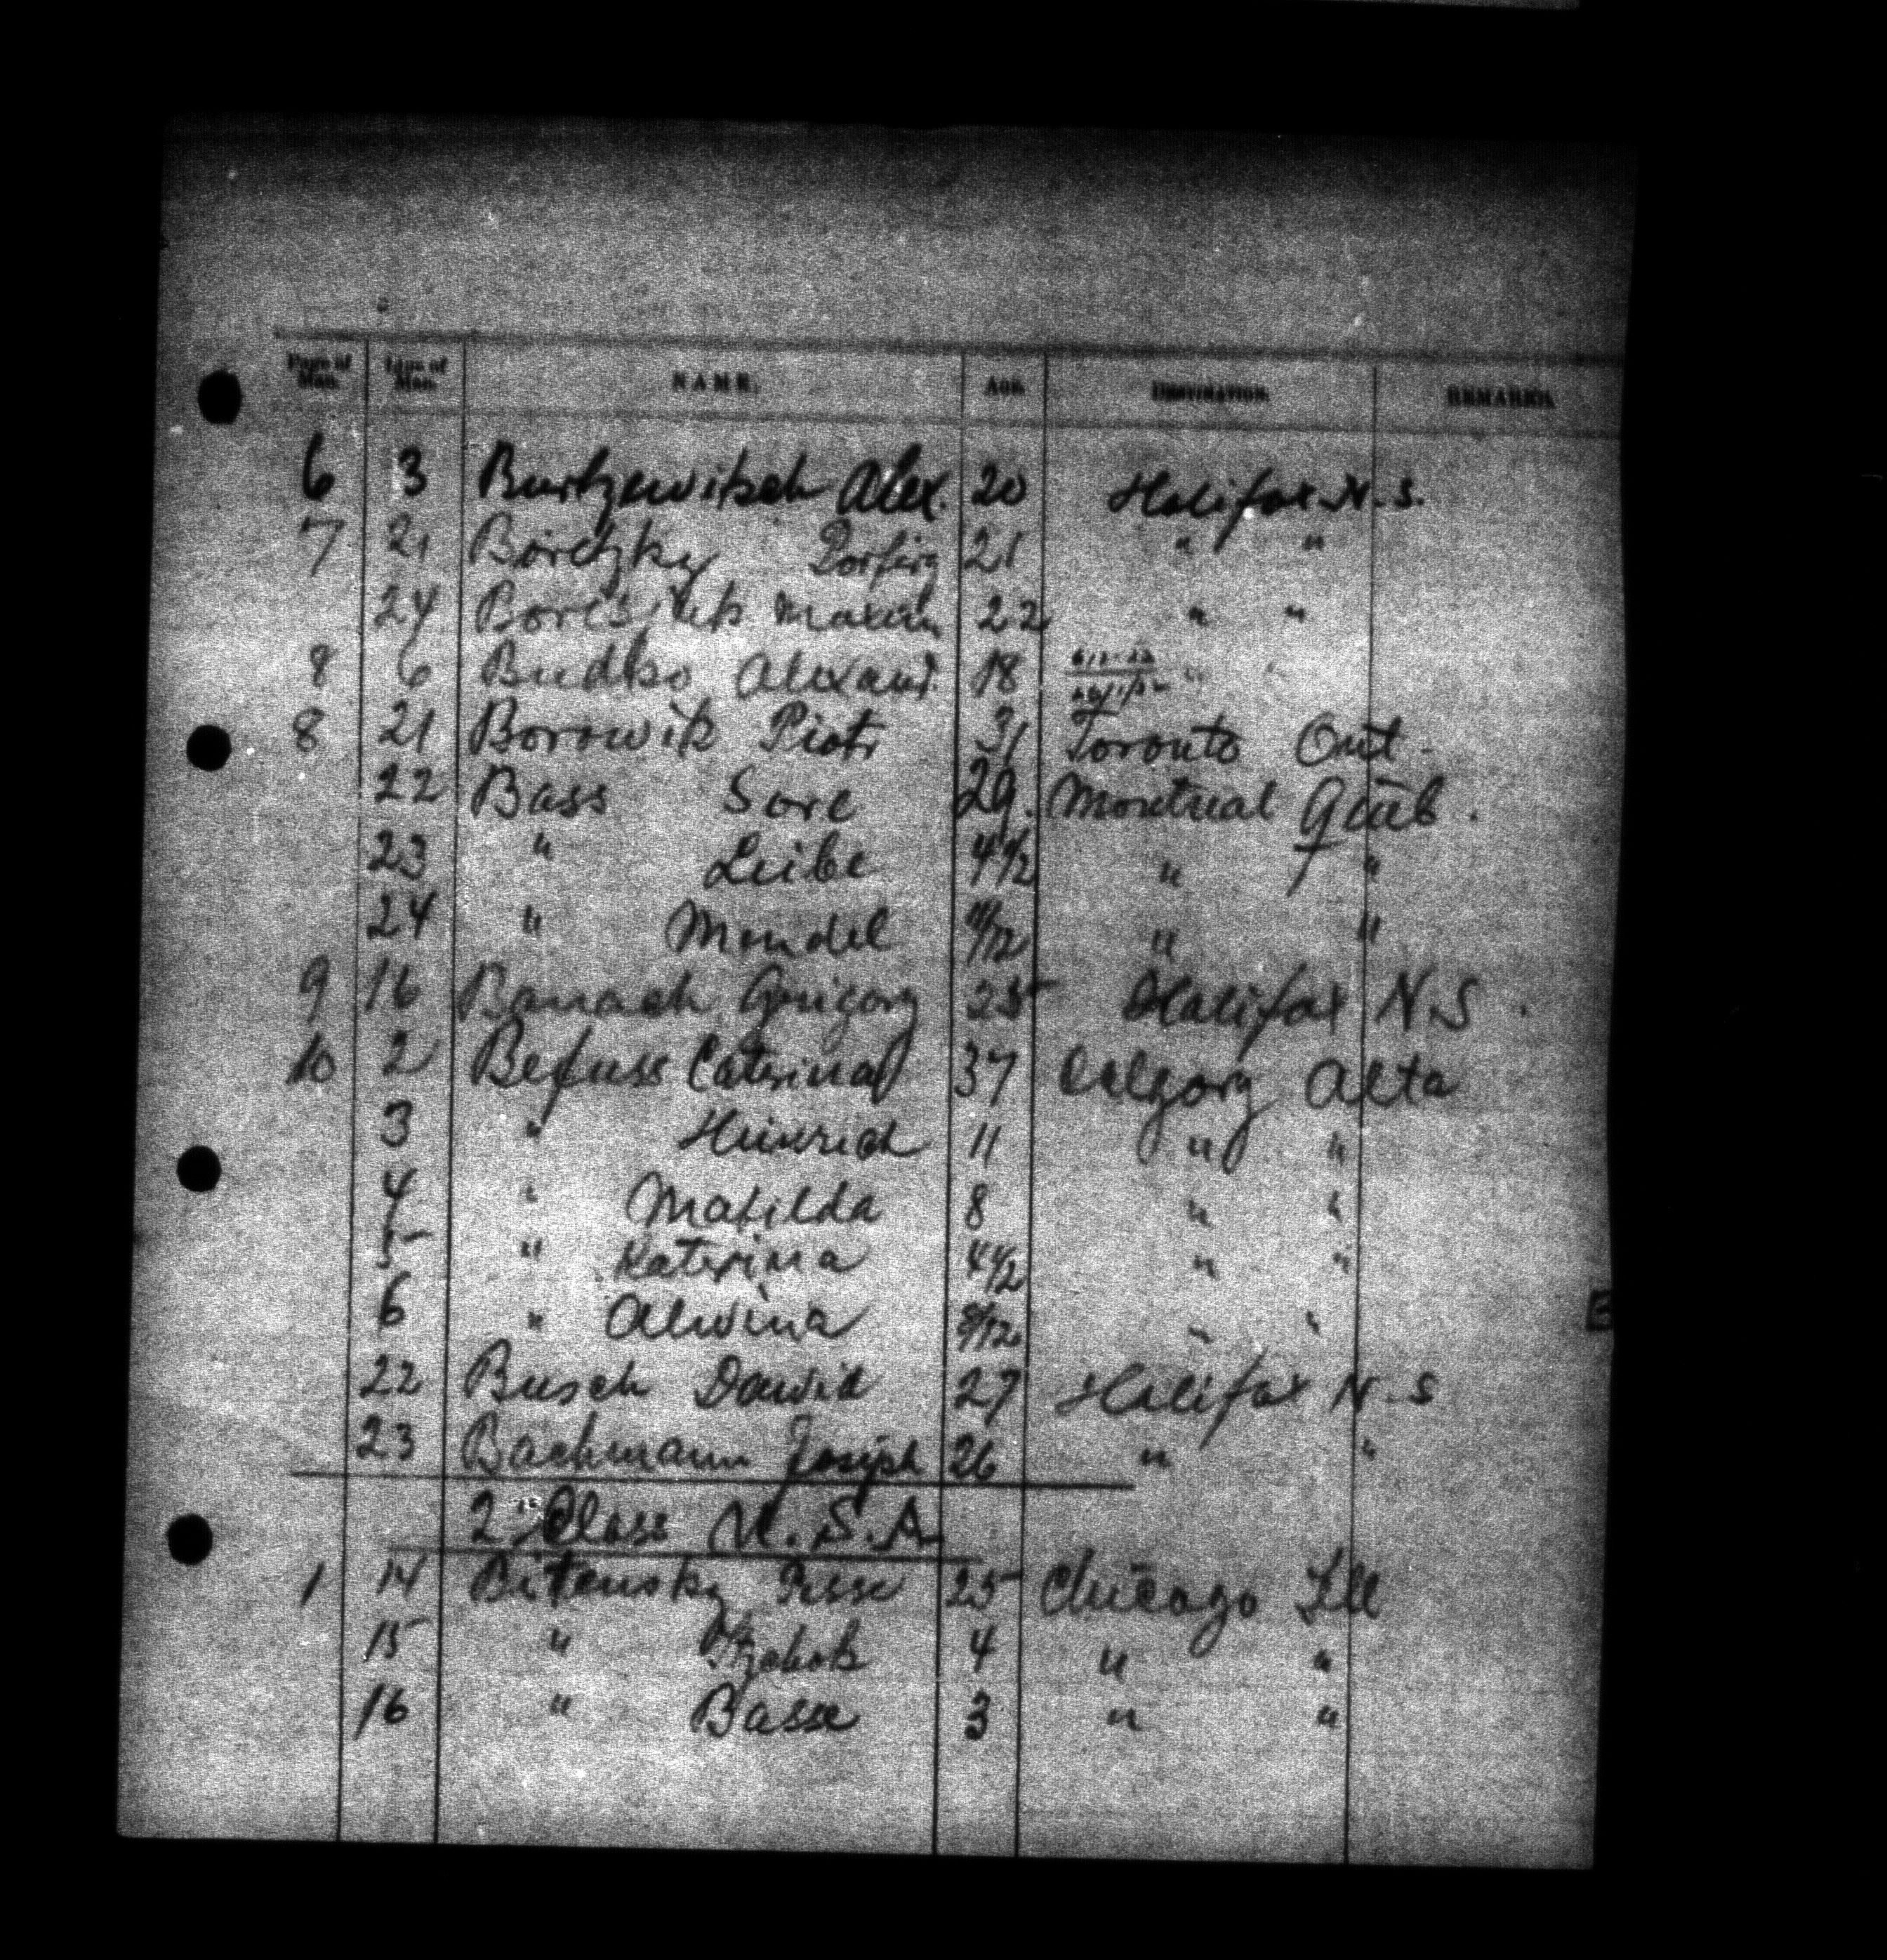 Page of Man. Line of Man. NAME. AGE. DESTINATION. REMARKS.
6 3 Burtzewitsch Alex. 20 Halifax N.S.
7 21 Boretzky Porfiry 21 " "
24 Maxim 22 " "
8 6 Budko Alexand. 18 "
8 21 Borowik Piotr 31 Toronto Ont.
22 Bass Sore 29. Montreal Queb.
23 " Leibe 4 1/2 " "
24 " Mendel 11/12 " "
9 16 Banach Grigory 25 Halifax N.S.
10 2 Befuss Caterina 37 Calgary Alta
3 " Heinrich 11 " "
4 " Matilda 8 " "
5 " Katerina 4 1/2 " "
6 " Alwina 8/12 " "
22 Busch Dawid 27 Halifax N.S
23 Bachmann Joseph 26 " "
2 Class U.S.A
1 14 Bitensky Pesse 25 Chicago Ill
15 " 4 " "
16 " Basse 3 " "